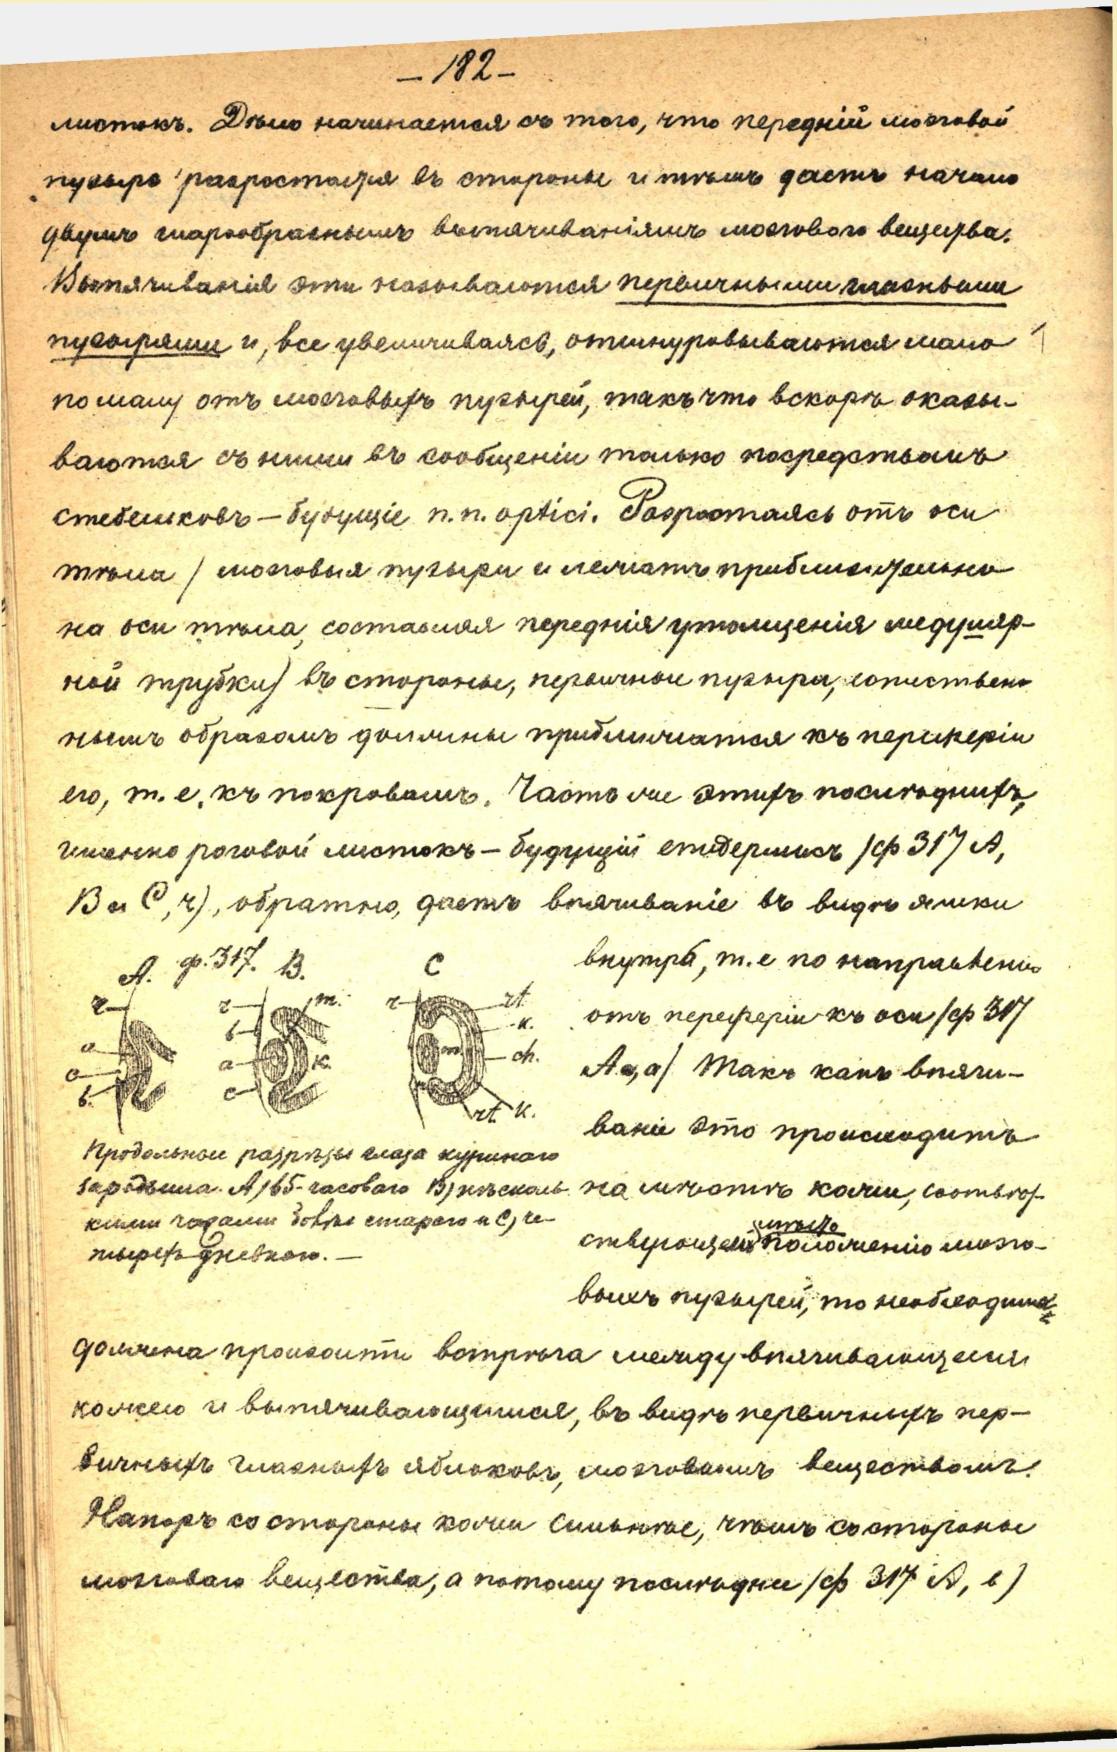 — 182 —
листокъ. Дѣло начинается съ того, что передній мозговой
пузырь разростается въ стороны и тѣмъ даетъ начало
двумъ шарообразнымъ выпячиваніямъ мозгового вещества.
Выпячиванія эти называются первичными глазными
пузырями и, все увеличиваясь, отшнуровываются мало
по малу отъ мозговыхъ пузырей, такъ что вскорѣ оказы-
ваются съ ними въ сообщеніи только посредствомъ
стебельковъ — будущіе n.n. optici. Разростаясь отъ оси
тѣла / мозговыя пузыри и лежатъ приблизительно
на оси тѣла, составляя переднія утолщенія медуляр-
ной трубки) въ стороны, первичные пузыри, естествен-
нымъ образомъ должны приблизиться къ периферіи
его, т. е. къ покровамъ. Часть же этихъ послѣднихъ,
именно роговой листокъ — будущій епидермисъ /ф 317 А,
В и С, ч), обратно, даетъ впячиваніе въ видѣ ямки
А. ф. 317. В. С
r a c b
r b a c m. k.
r rt. k. m ch. rt k.
Продольные разрѣзы глаза куринаго
зародыша. А) 65-часоваго В) нѣсколь-
кими часами болѣе стараго и С) че-
тырехъ дневнаго. —
внутрь, т. е по направленію
отъ периферіи къ оси /ф 317
А а, а/ Такъ какъ впячи-
ваніе это происходитъ
на мѣстѣ кожи, соотвѣт-
ствующемъ положенію мозго-
выхъ пузырей, то необходимо
должна произойти встрѣча между впячивающеюся
кожею и выпячивающимся, въ видѣ первичныхъ пер-
вичныхъ глазныхъ яблоковъ, мозговымъ веществомъ.
Напоръ со стороны кожи сильнѣе, чѣмъ со стороны
мозговаго вещества, а потому послѣднее /ф 317 А, в)